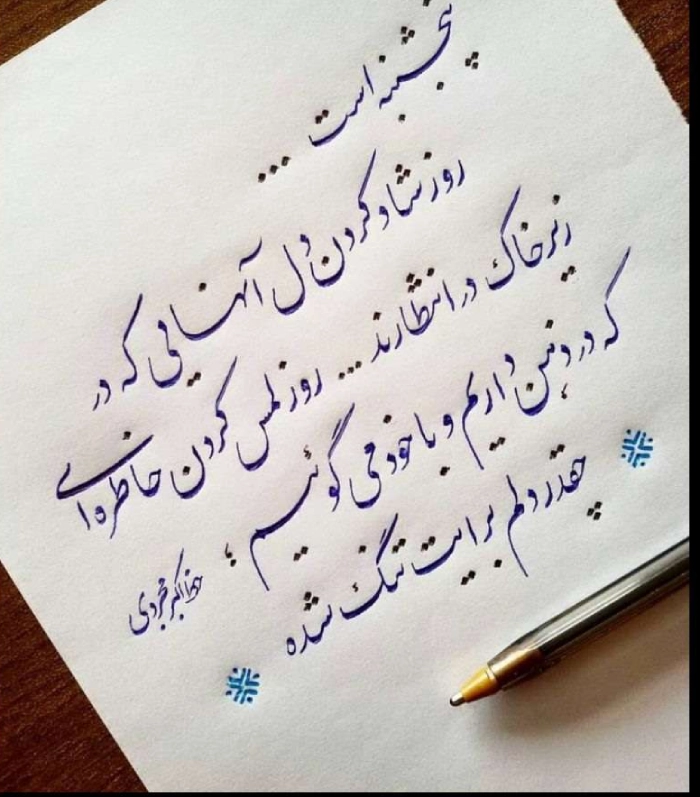 پنجشنبه است ...
روز شاد کردن دل آنهایی که در
زیر خاک در انتظارند... روز لمس کردن خاطره ای
که در ذهن داریم و با خود می گوئیم ؛
چقدر دلم برایت تنگ شده
اکبر